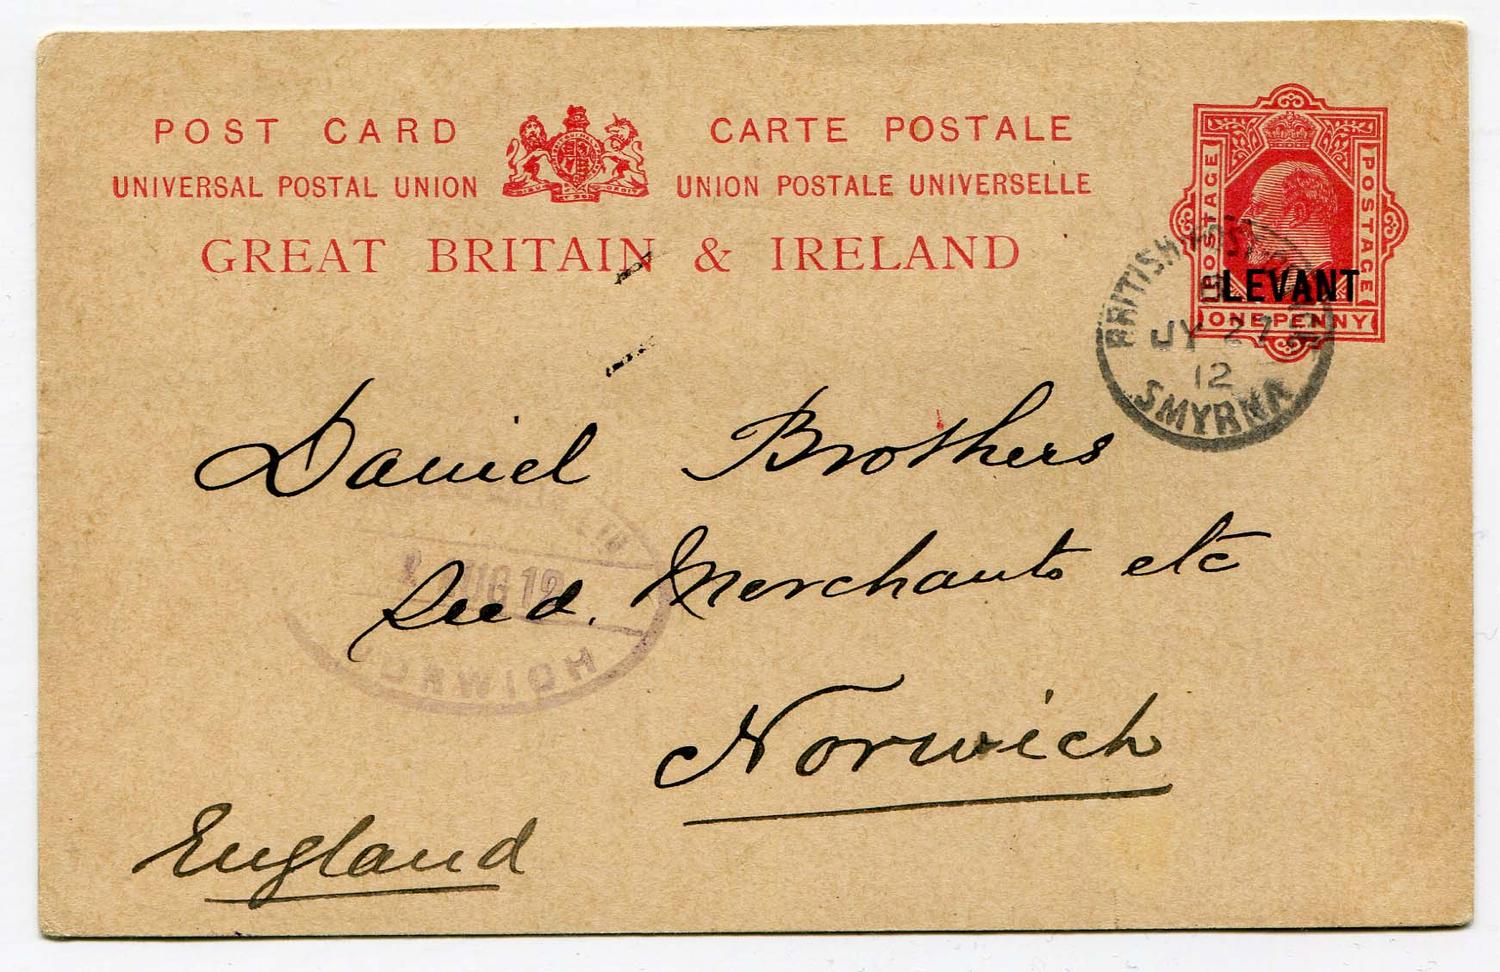 POST CARD CARTE POSTALE
UNIVERSAL POSTAL UNION UNION POSTALE UNIVERSELLE
GREAT BRITAIN & IRELAND
POSTAGE POSTAGE
LEVANT
ONE PENNY
BRITISH POST OFFICE
JY 27
12
SMYRNA
Daniel Brothers
Seed. Merchants etc
Norwich
England
LTD
AUG 12
NORWICH